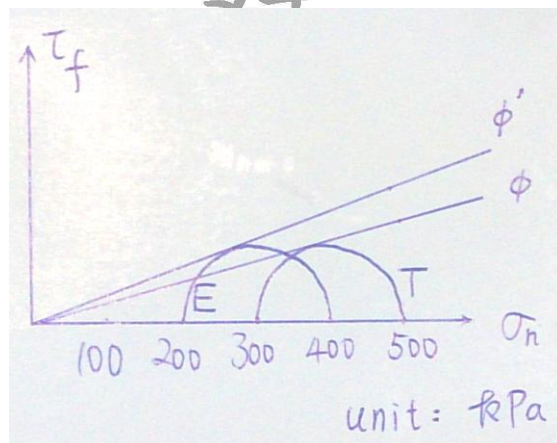 τf
ϕ'
ϕ
E
T
100 200 300 400 500
σn
unit: kPa